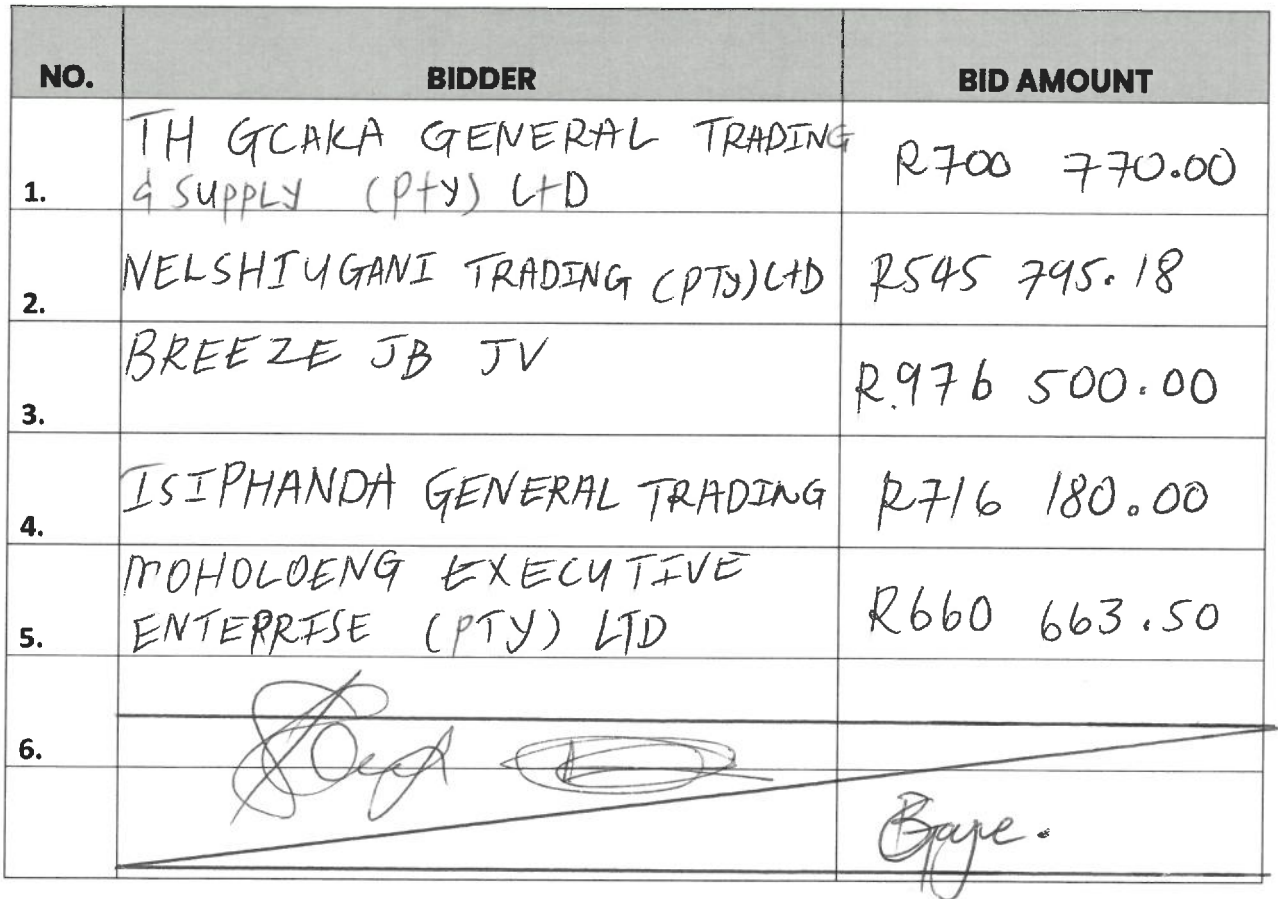 NO. BIDDER BID AMOUNT
TH GCAKA GENERAL TRADING
1. & SUPPLY (Pty) LtD R700 770.00
2. NELSHIUGANI TRADING (PTy) LtD R545 795.18
3. BREEZE JB JV R976 500.00
4. ISIPHANDA GENERAL TRADING R716 180.00
MOHOLOENG EXECUTIVE
5. ENTERPRISE (PTY) LTD R660 663.50
6.